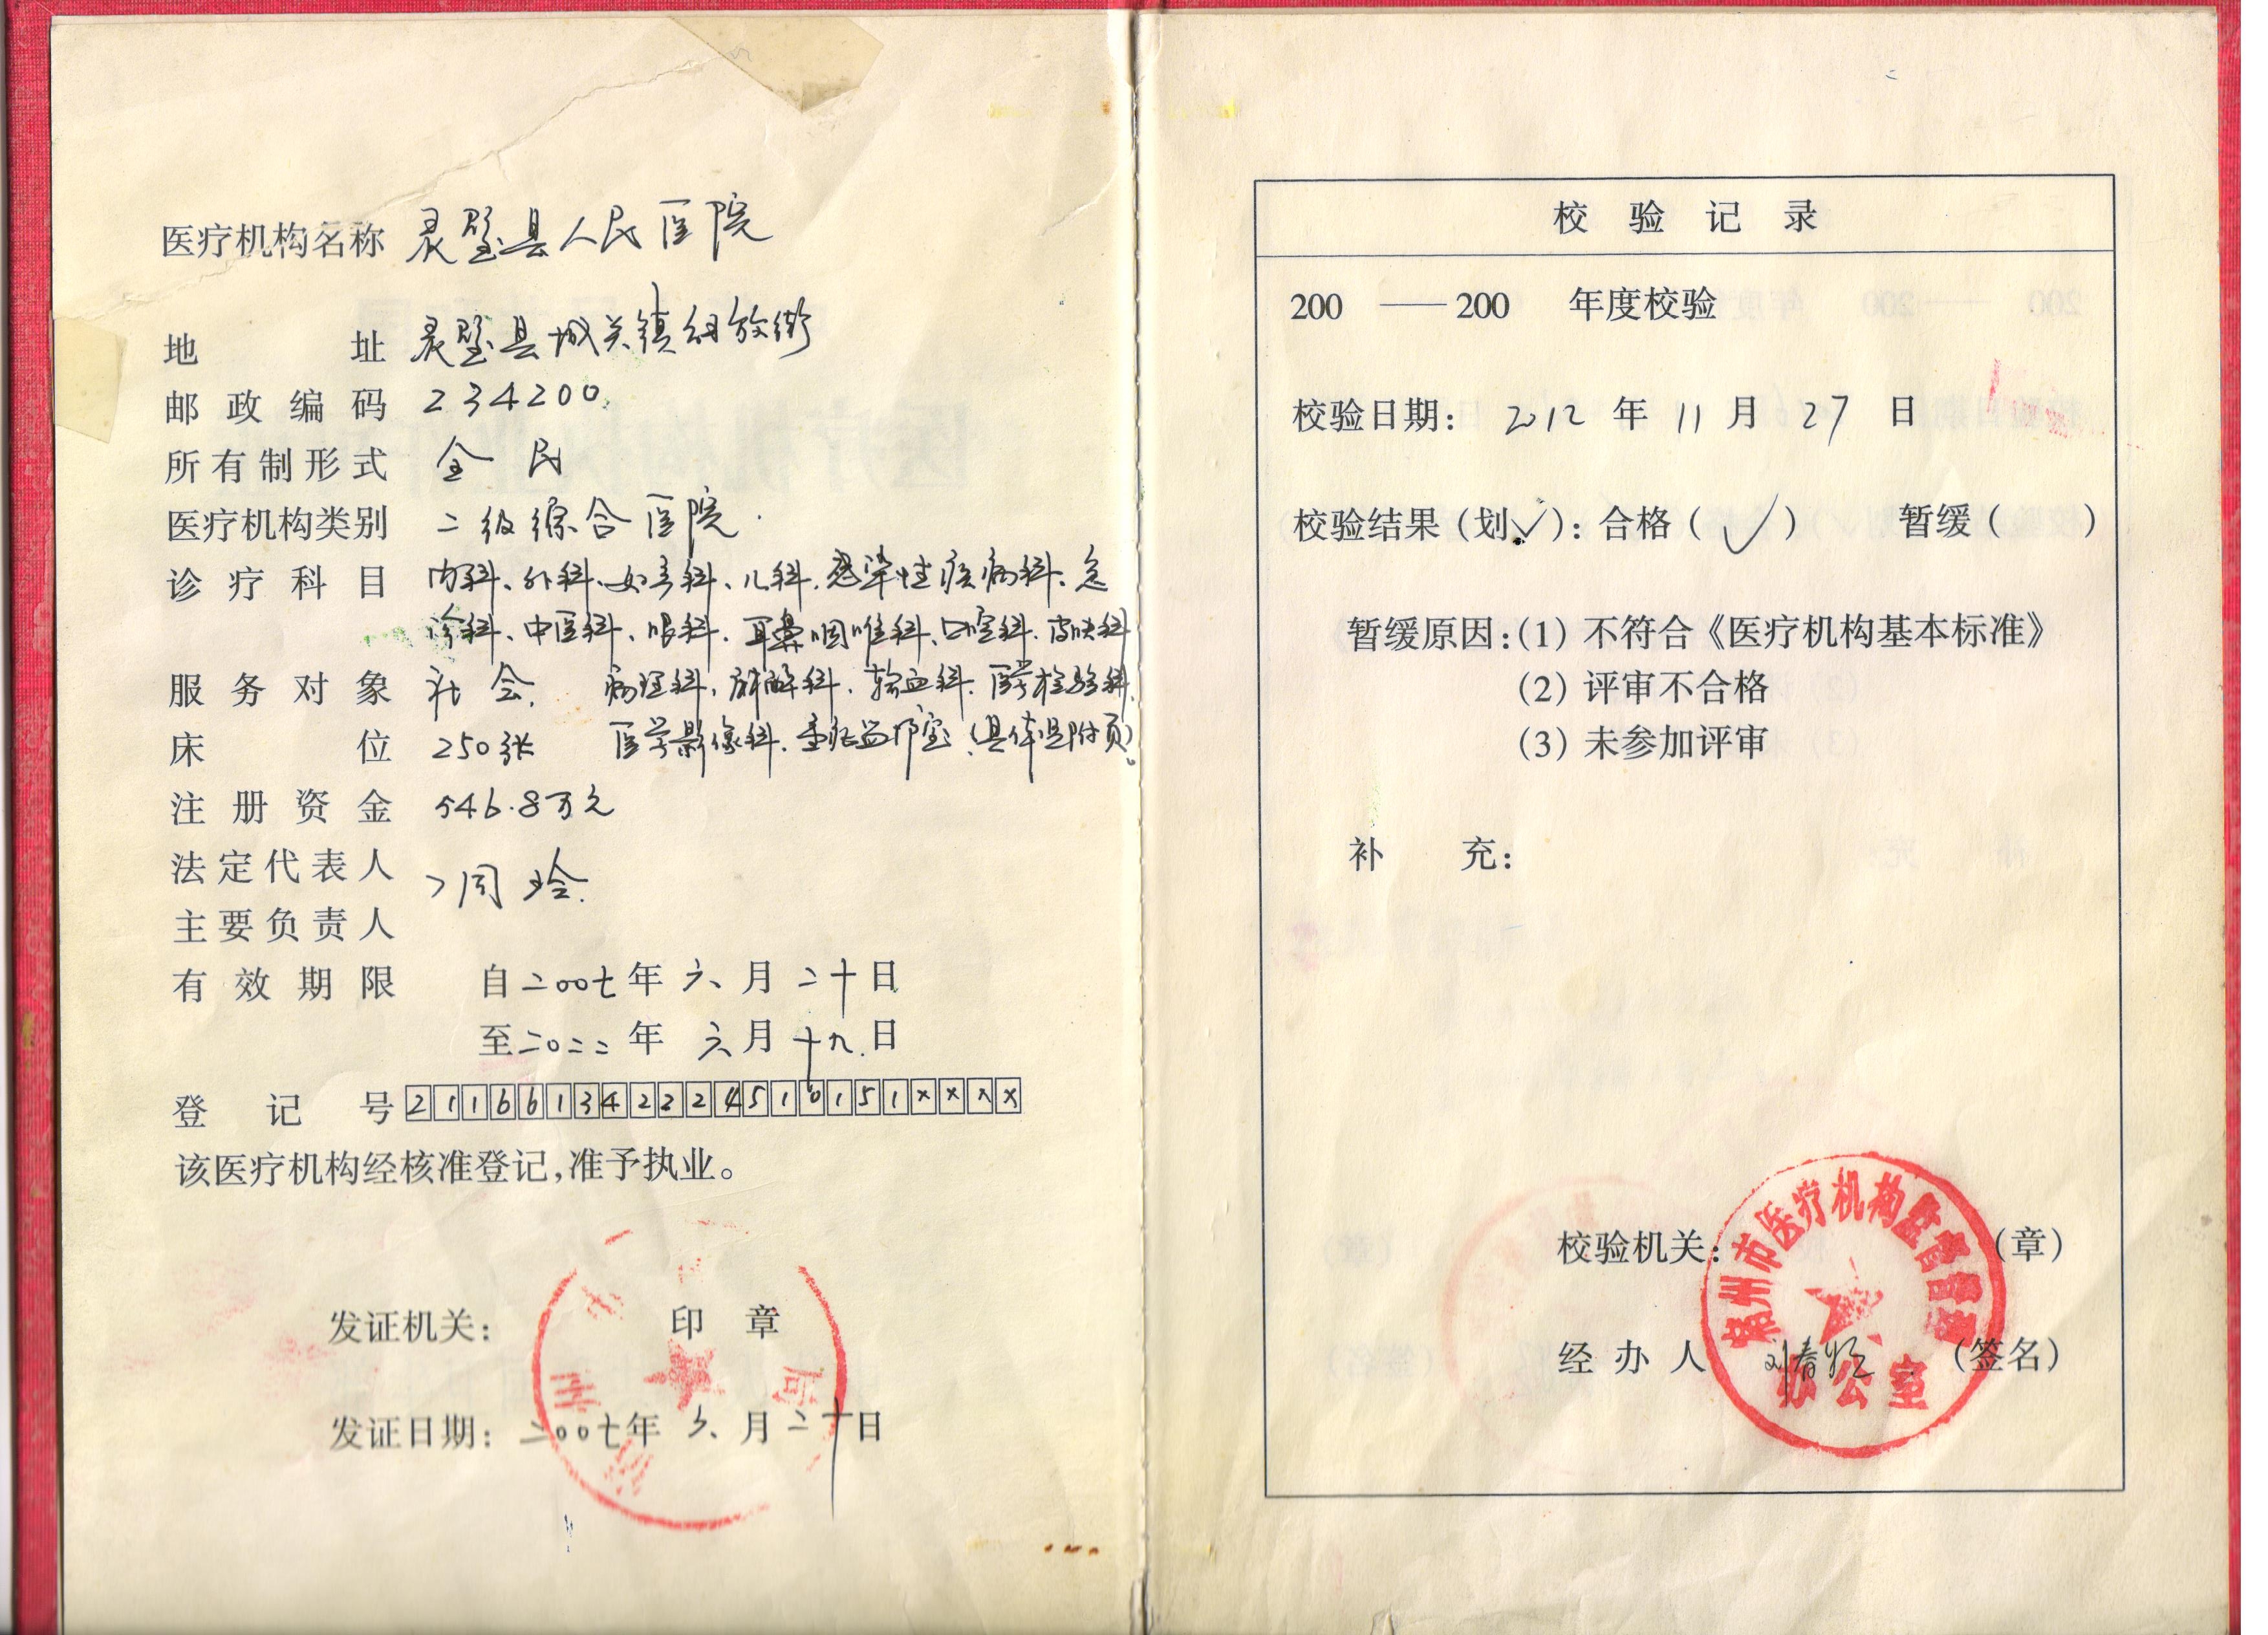 医疗机构名称 灵璧县人民医院
地 址 灵璧县城关镇解放街
邮政编码 234200
所有制形式 全 民
医疗机构类别 二级综合医院
诊疗科目 内科、外科、妇产科、儿科、感染性疾病科、急
诊科、中医科、眼科、耳鼻咽喉科、口腔科、皮肤科
服务对象 社会 病理科、麻醉科、输血科、医学检验科、
床 位 250张 医学影像科、重症监护室(具体见附页)。
注册资金 546.8万元
法定代表人
周玲
主要负责人
有效期限 自二00七年六月二十日
至二0二二年六月十九日
登记号 211661342224510151××××
该医疗机构经核准登记,准予执业。
发证机关: 印章
局
发证日期: 二00七年六月二十日
校验记录
200 —— 200 年度校验
校验日期: 2012 年 11 月 27 日
校验结果(划√): 合格(√) 暂缓( )
暂缓原因:(1) 不符合《医疗机构基本标准》
(2) 评审不合格
(3) 未参加评审
补 充:
校验机关: (章)
宿州市医疗机构监督管理
办公室
经办人 刘春 (签名)